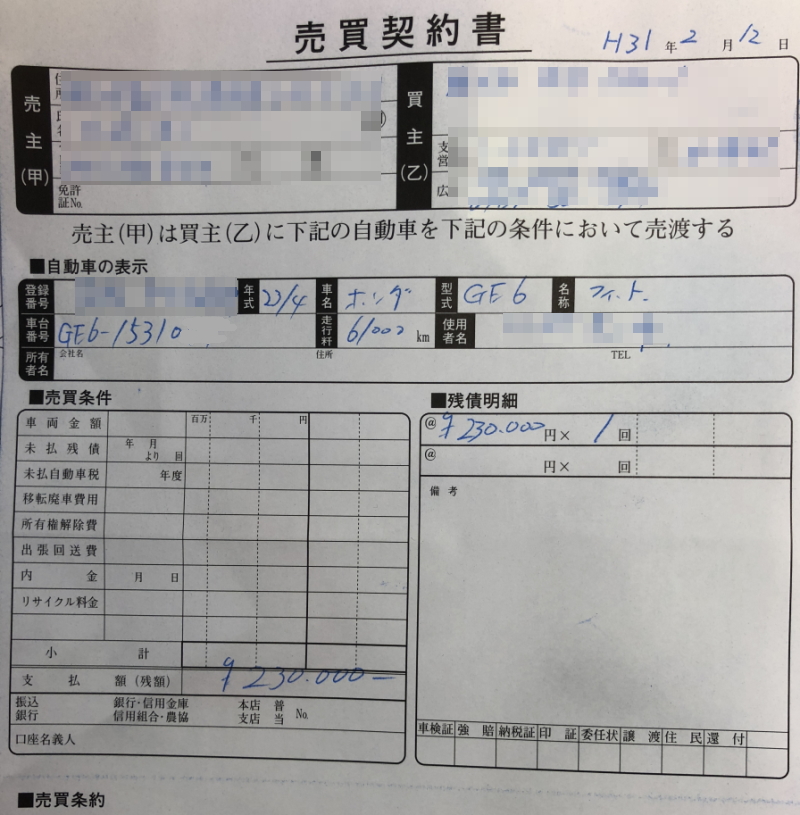 売買契約書
H31年2月12日
売主(甲)
買主(乙)
免許証No.
売主(甲)は買主(乙)に下記の自動車を下記の条件において売渡する
■自動車の表示
登録番号 年式 22/4 車名 ホンダ 型式 GE6 名称 フィット
車台番号 GE6-15310 走行粁 61000km 使用者名
所有者名 会社名 住所 TEL
■売買条件
車両金額 百万 千 円
未払残債 年 月より 回
未払自動車税 年度
移転廃車費用
所有権解除費
出張回送費
内金 月 日
リサイクル料金
小計
支払額(残額) ¥230.000-
振込銀行 銀行・信用金庫 信用組合・農協 本店 支店 普 当 No.
口座名義人
■残債明細
@ ¥230.000円× 1回
@ 円× 回
備考
車検証 強賠 納税証 印証 委任状 譲渡 住民 還付
■売買条約